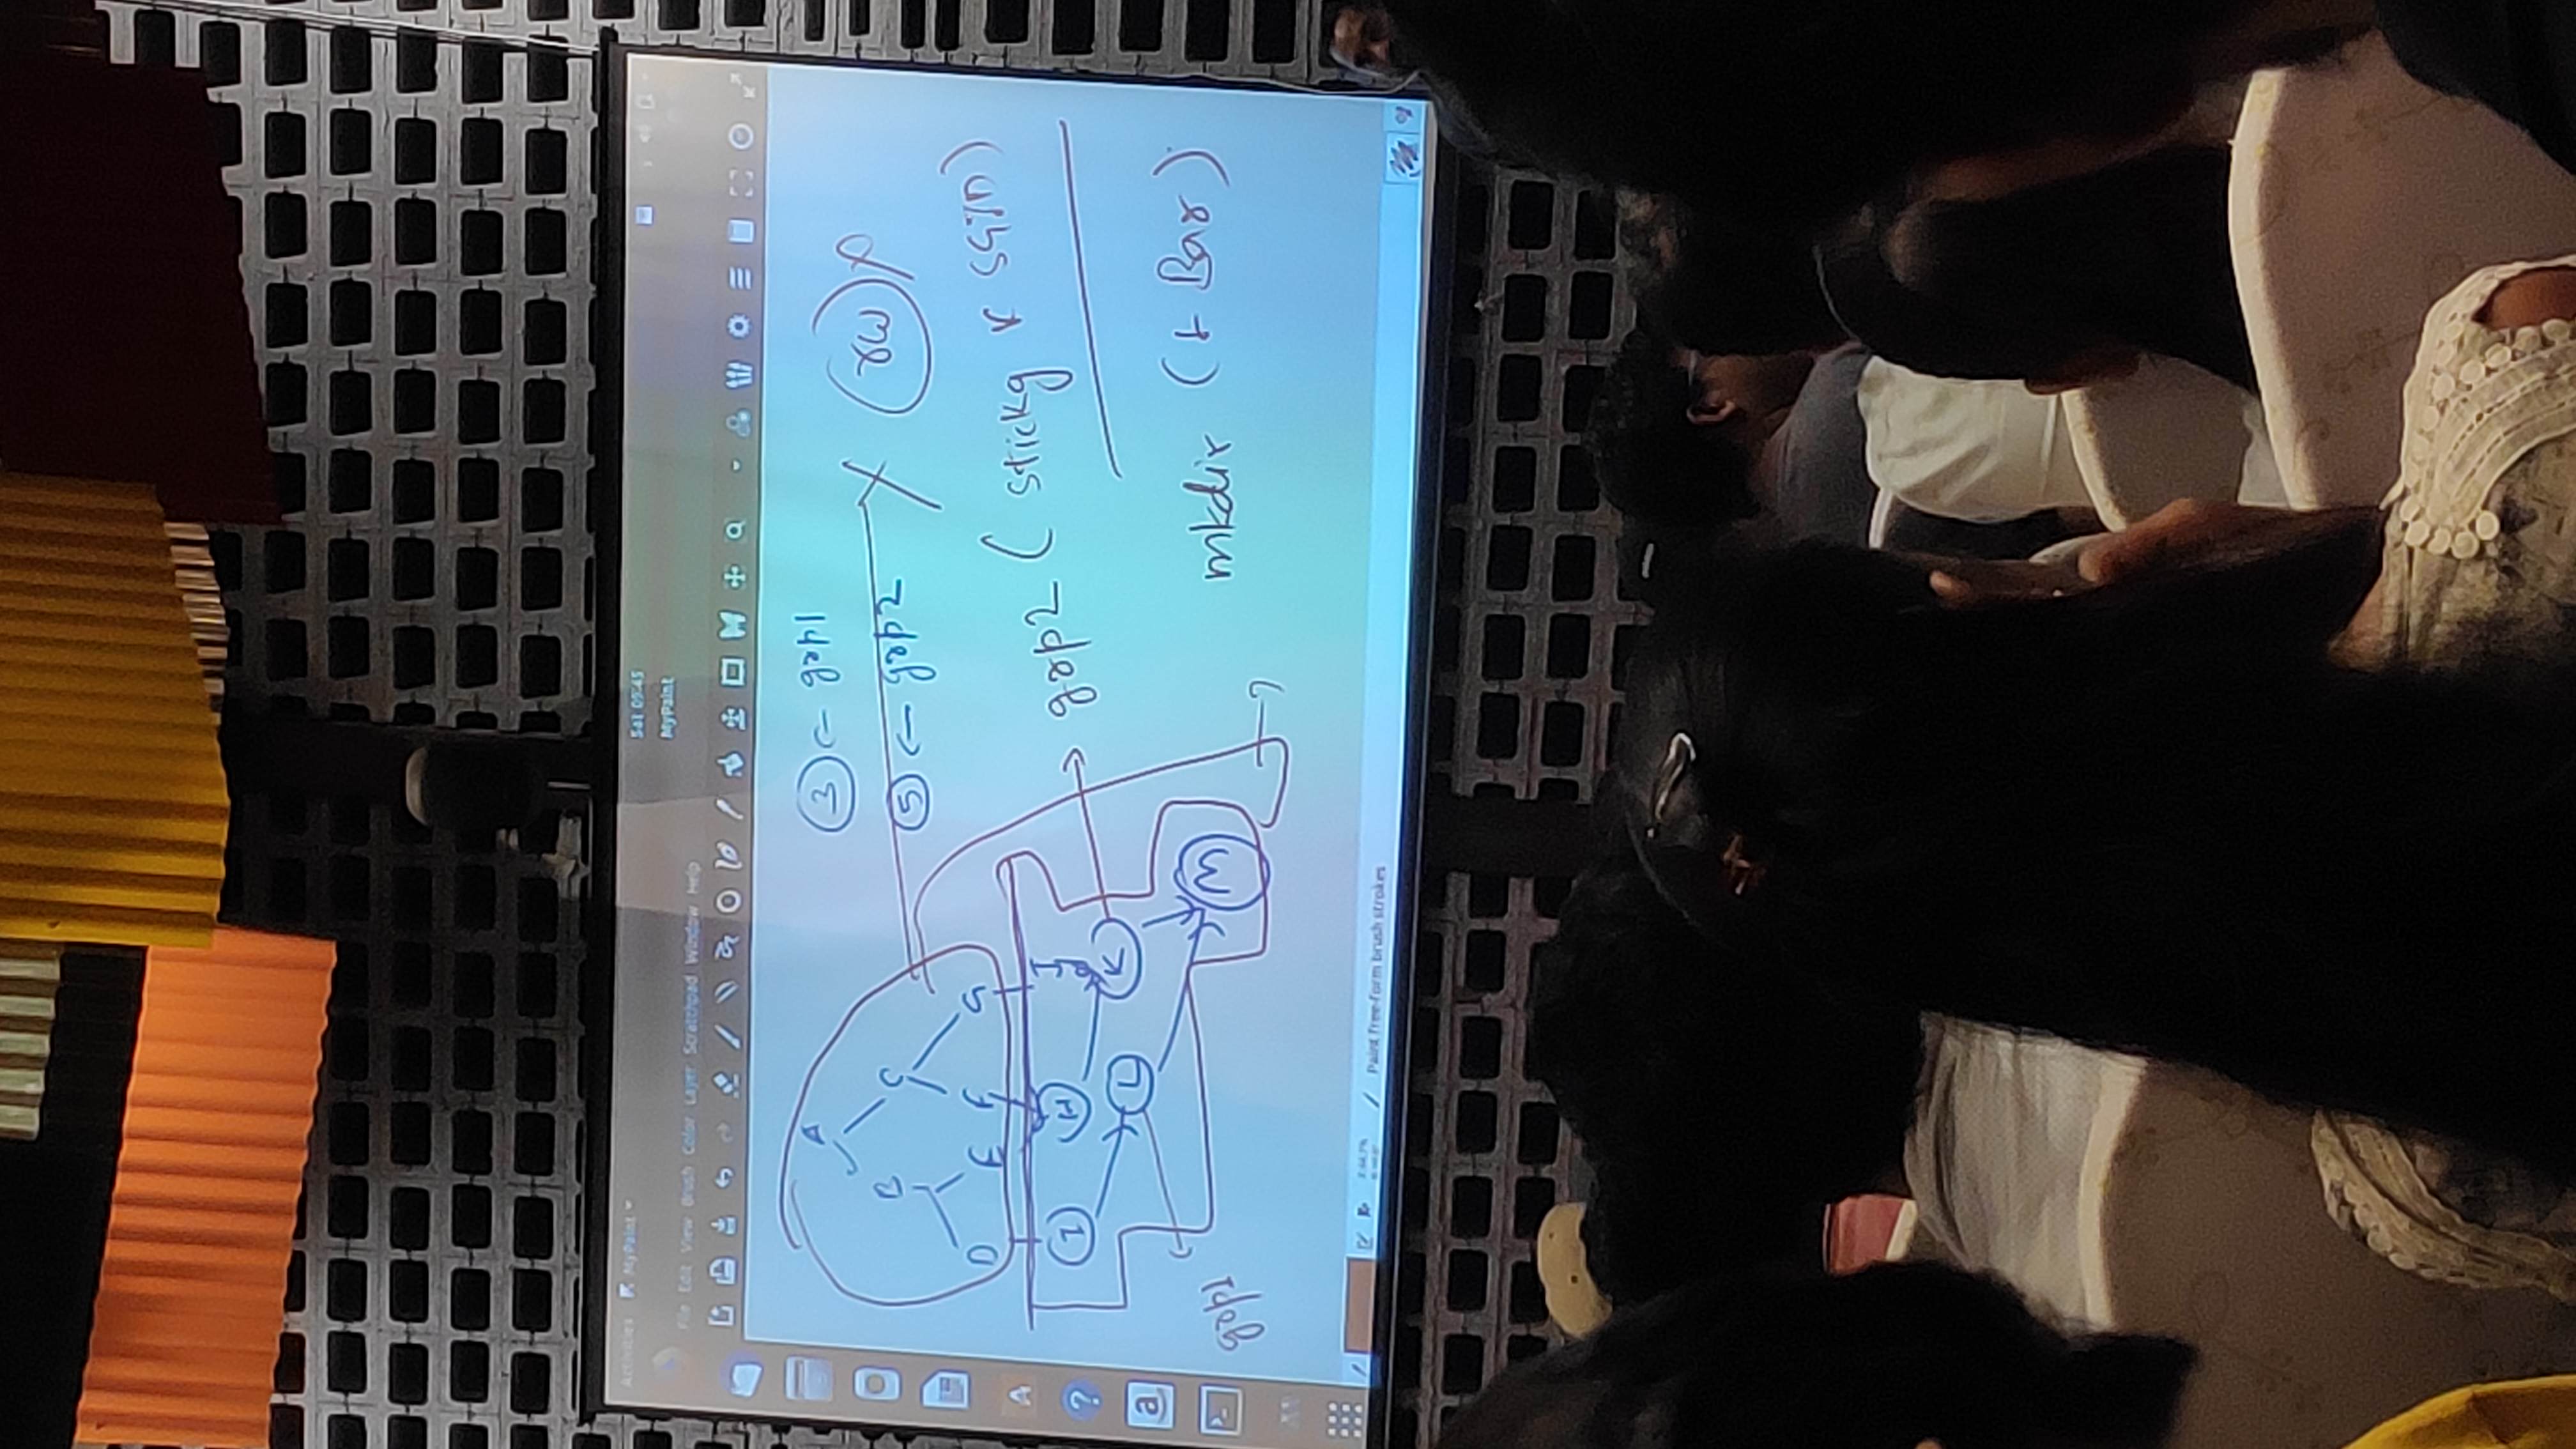 Activities MyPaint
Sat 09:45
MyPaint
File Edit View Brush Color Layer Scratchpad Window Help
A
B C
D E F G
I H J
L K
M
grp1
3 ← grp1
5 ← grp2
rw
grp2 ( sticky & SGID )
mkdir ( & Bar )
?
Paint free-form brush strokes